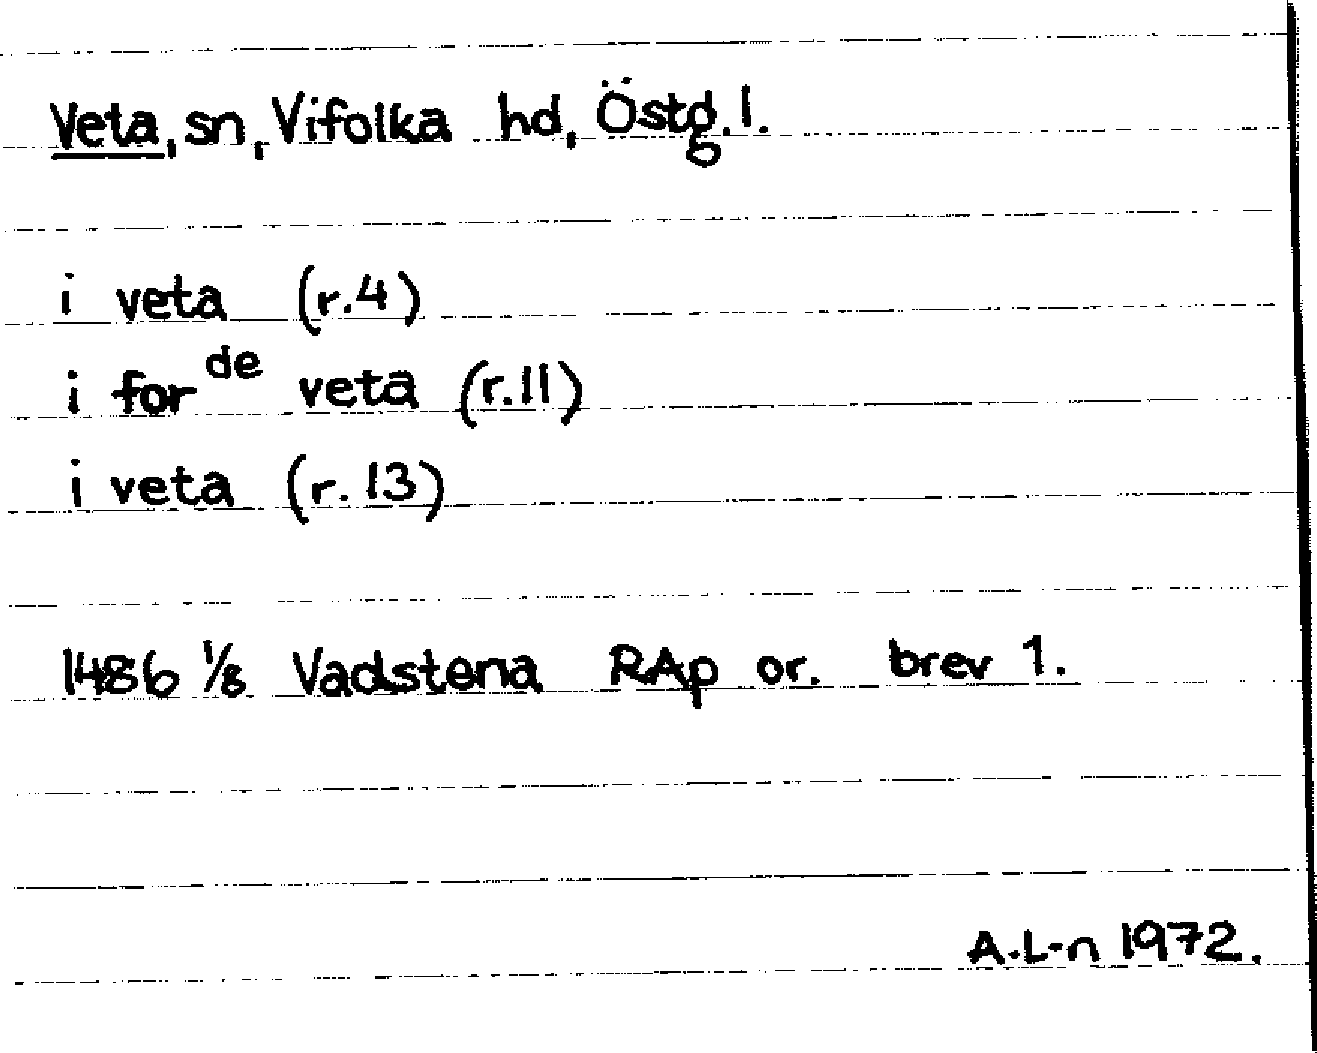 Veta, sn, Vifolka hd, Östg.l.
i veta (r.4)
i for de veta (r.11)
i veta (r.13)
1486 1/8 Vadstena RAp or. brev 1.
A.L-n 1972.